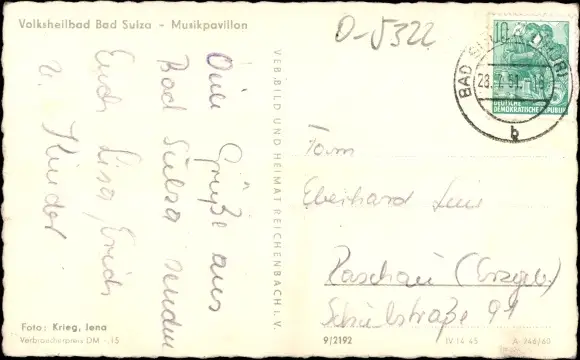 Volksheilbad Bad Sulza - Musikpavillon
O-5322
10
BAD SULZA
28.7.61
b
DEUTSCHE
DEMOKRATISCHE REPUBLIK
Viele Grüße aus
Bad Sulza senden
Euch Lisa, Erich
u. Kinder
VEB BILD UND HEIMAT REICHENBACH i. V.
Fam
Eberhard
Raschau (Erzgeb.)
Schulstraße 91
Foto: Krieg, Jena
Verbraucherpreis DM -.15
9/2192
IV-14-45
A 246/60